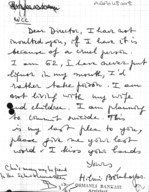 WCL
Dear Director, I have not
insulted you, if I have it is
because of a cruel person
I am 62, I have never put
liquor in my mouth, I'd
rather take poison. I am
not living with my wife
and children. I am planning
to commit suicide. This
is my last plea to you,
please give me your last
word. I kiss your hands
Yours